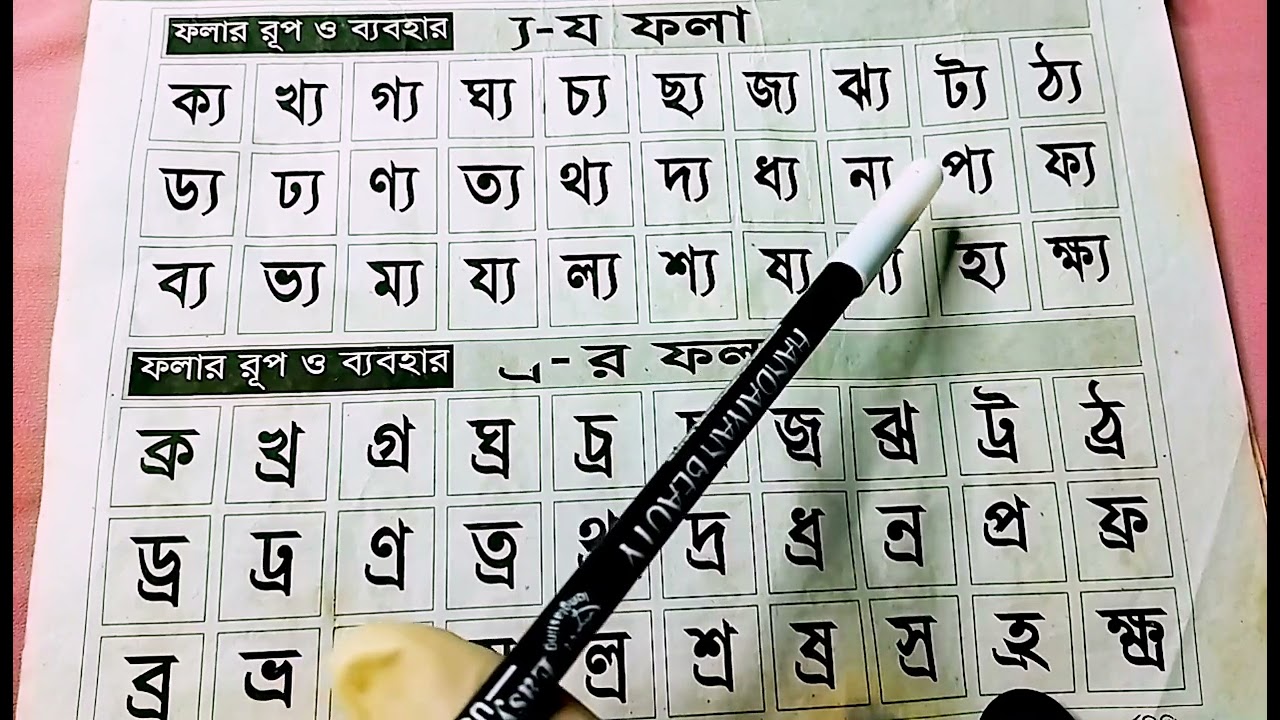 ফলার রূপ ও ব্যবহার ্য-য ফলা
ক্য খ্য গ্য ঘ্য চ্য ছ্য জ্য ঝ্য ট্য ঠ্য
ড্য ঢ্য ণ্য ত্য থ্য দ্য ধ্য ন্য প্য ফ্য
ব্য ভ্য ম্য য্য ল্য শ্য ষ্য হ্য ক্ষ্য
ফলার রূপ ও ব্যবহার ্র-র ফলা
ক্র খ্র গ্র ঘ্র চ্র জ্র ঝ্র ট্র ঠ্র
ড্র ঢ্র ণ্র ত্র থ্র দ্র ধ্র ন্র প্র ফ্র
ব্র ভ্র ল্র শ্র ষ্র স্র হ্র ক্ষ্র
HANDAIYAN BEAUTY